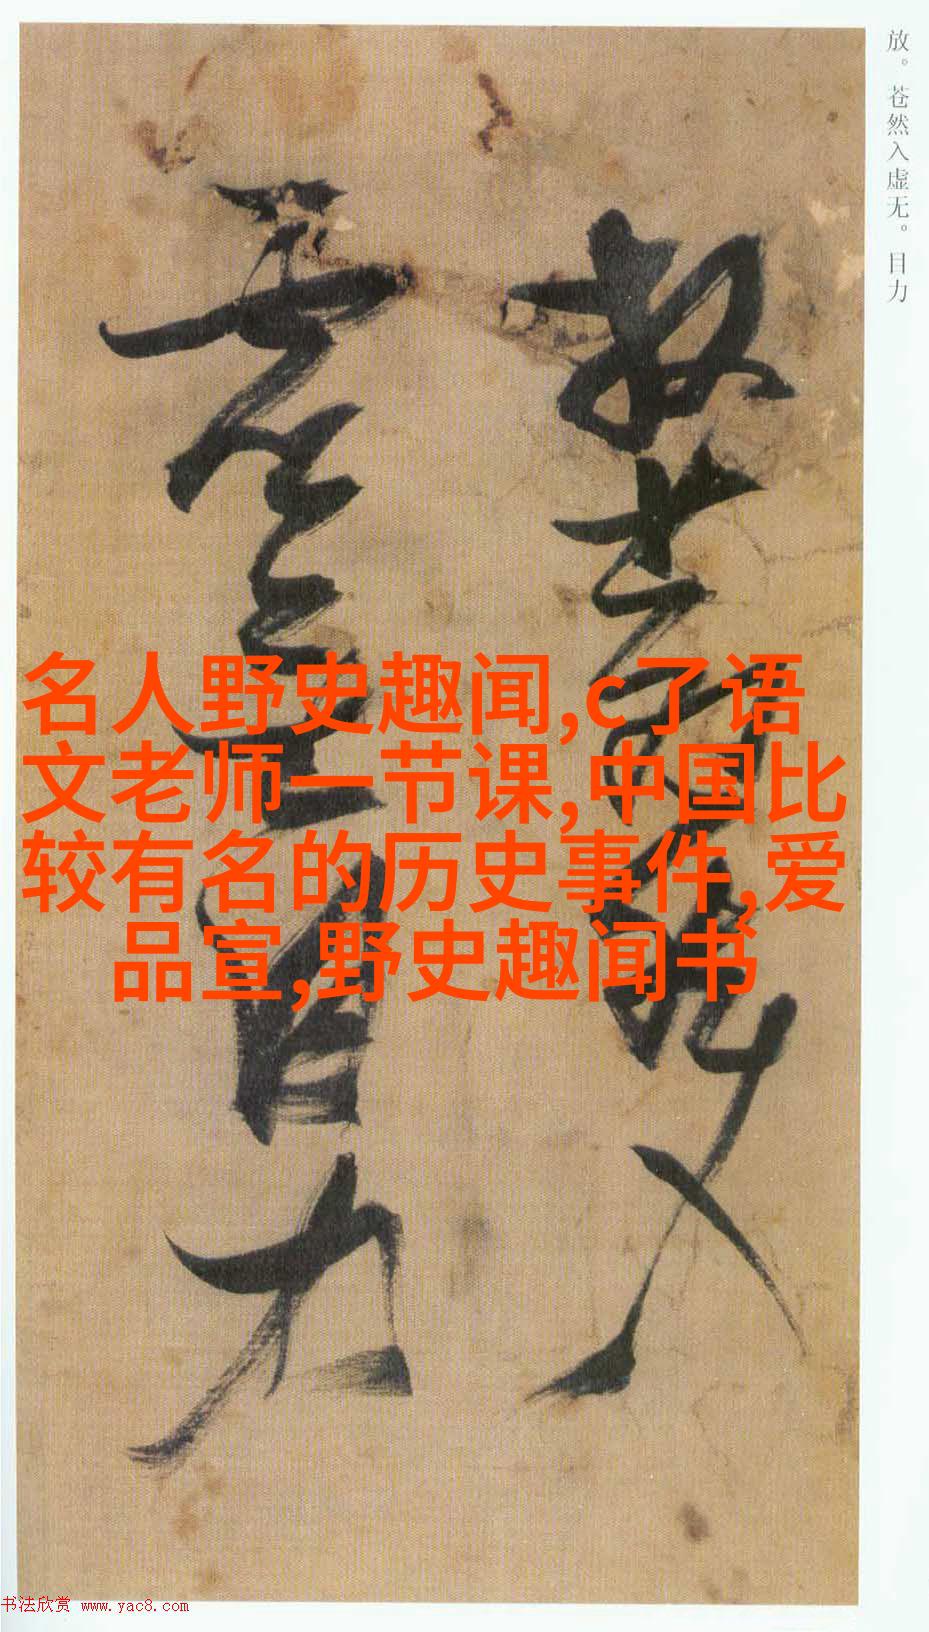 放。苍然入虚无。目力
放蒼然入
虛無目力
名人野史趣闻,c了语
文老师一节课,中国比
较有名的历史事件,爱
品宣,野史趣闻书
书法欣赏 www.yac8.com